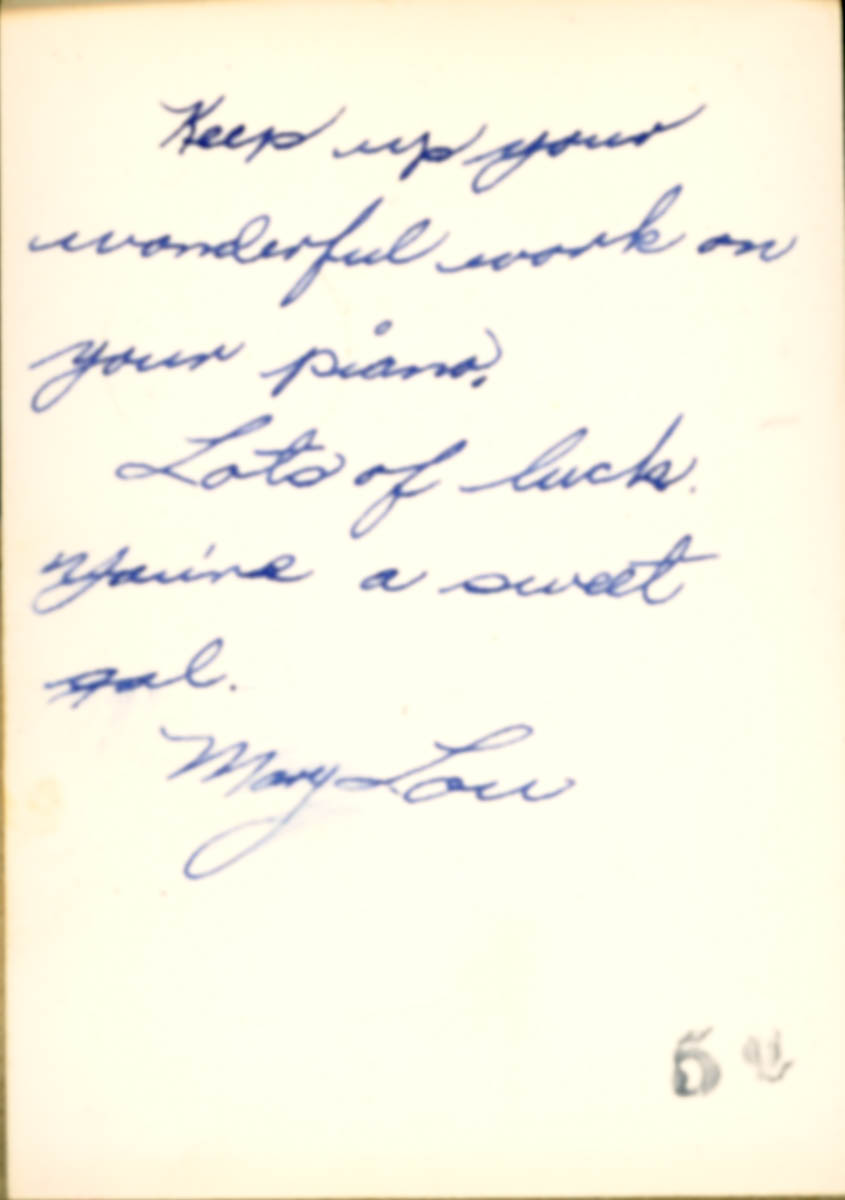 Keep up your
wonderful work on
your piano.
Lots of luck.
You're a sweet
gal.
Mary Lou
5